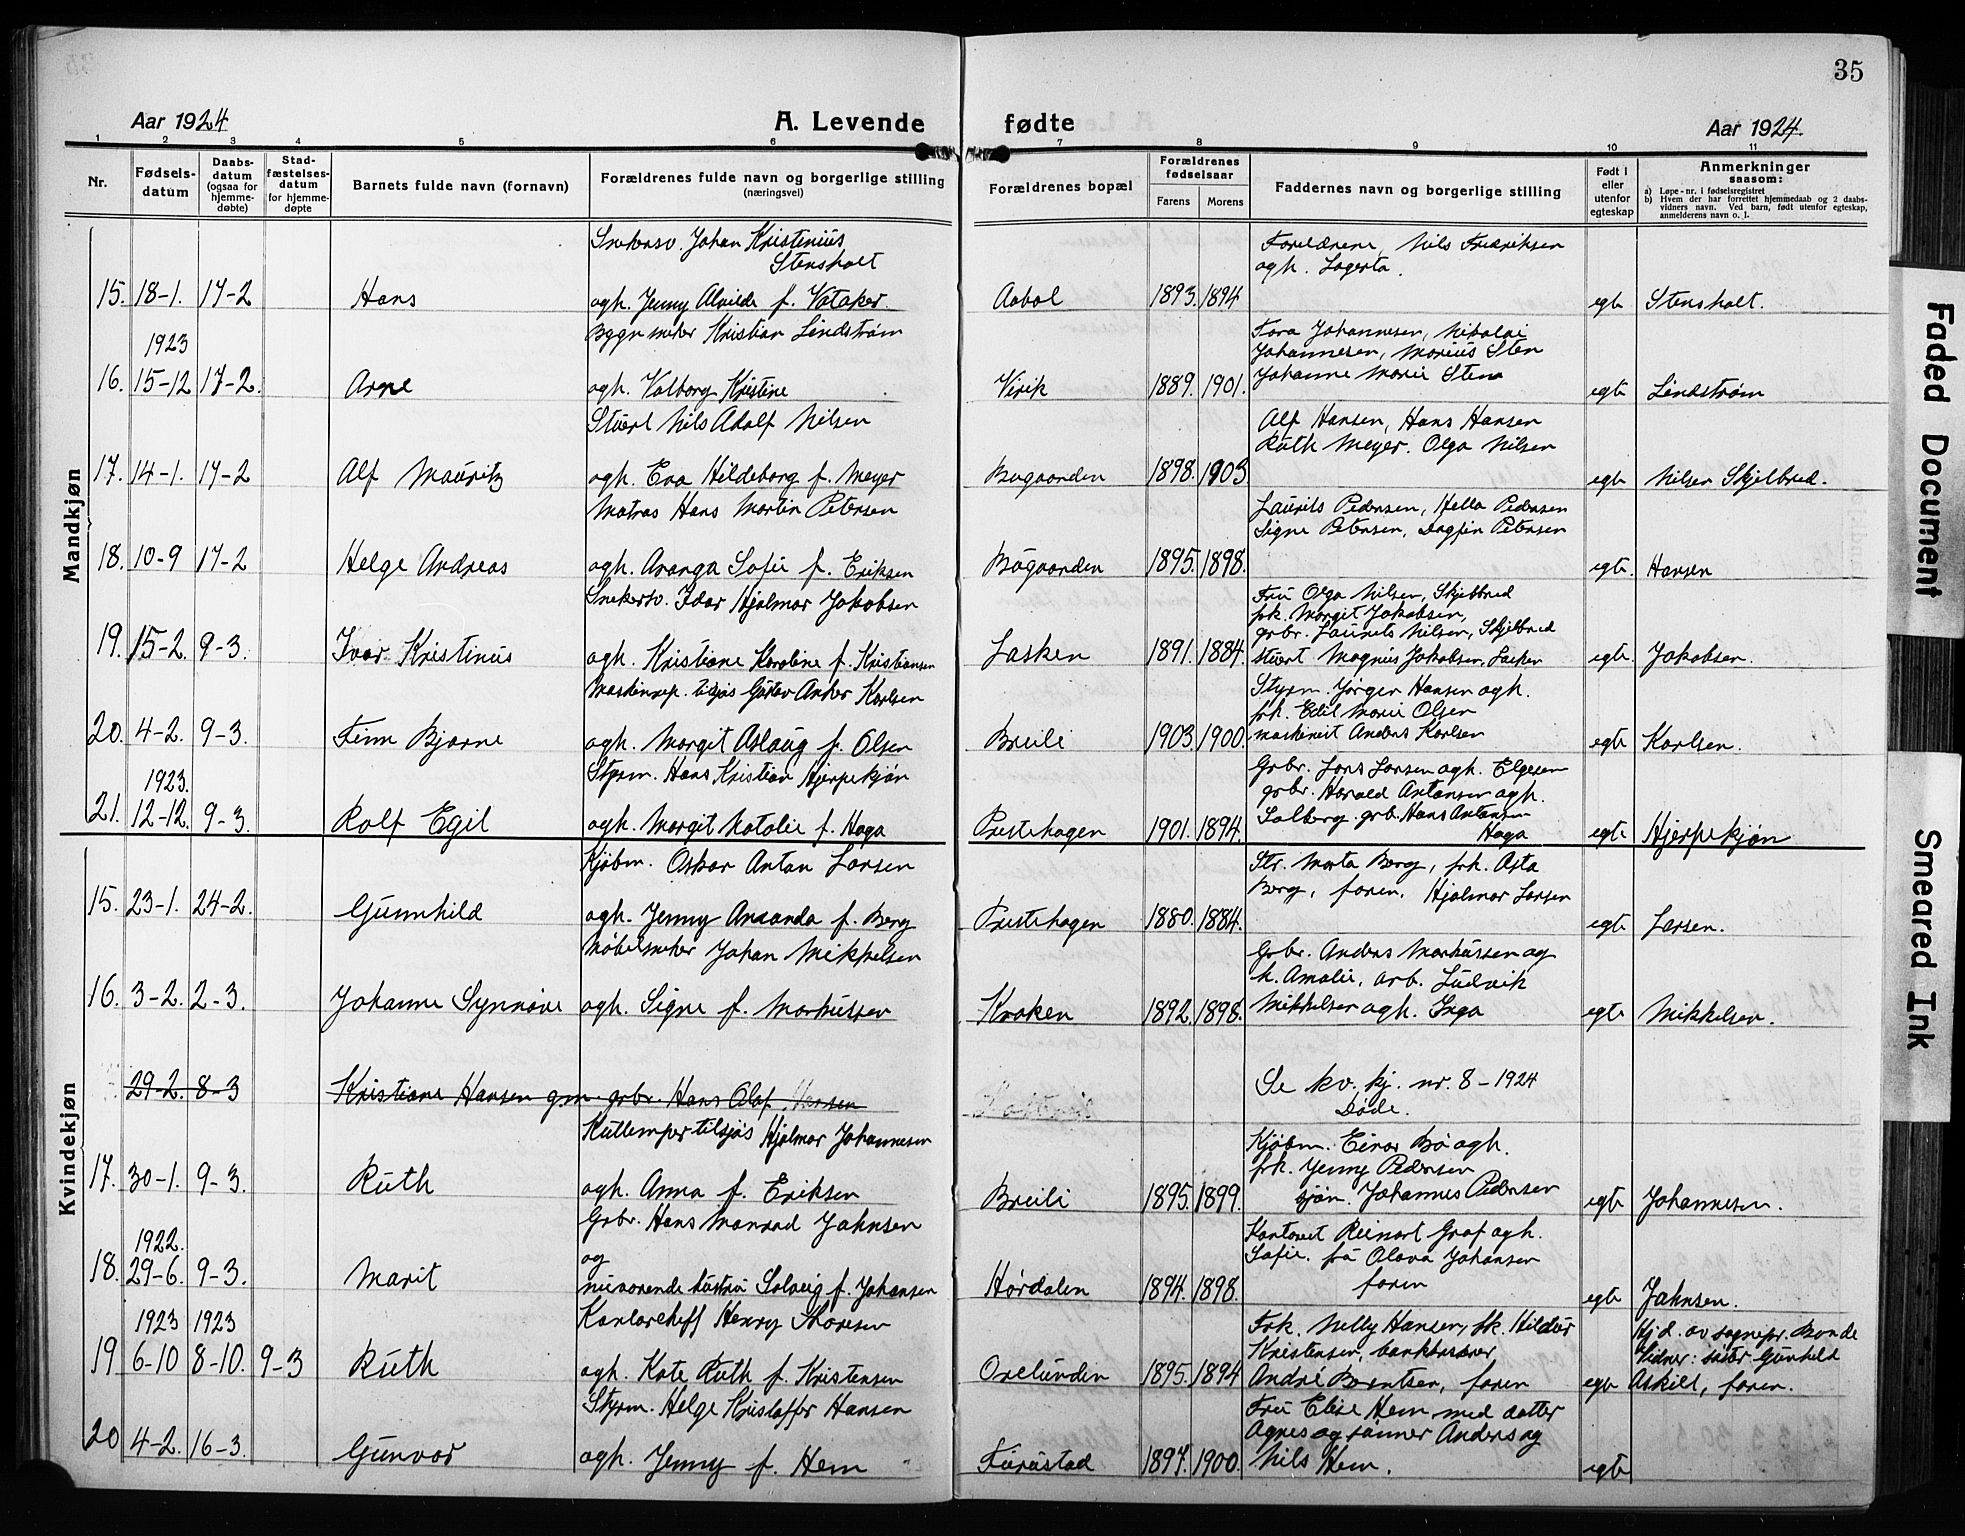 35
Aar 1924
A. Levende
fødte
Aar 1924
1 2 3 4 5 6 7 8 9 10 11
Nr.
Fødsels-
datum
Daabs-
datum
(ogsaa for
hjemme-
døbte)
Stad-
fæstelses-
datum
for hjemme-
døpte
Barnets fulde navn (fornavn)
Forældrenes fulde navn og borgerlige stilling
(næringsvei)
Forældrenes bopæl
Forældrenes
fødselsaar
Farens
Morens
Faddernes navn og borgerlige stilling
Født i
eller
utenfor
egteskap
Anmerkninger
saasom:
a) Løpe-nr. i fødselsregistret
b) Hvem der har forrettet hjemmedaab og 2 daabs-
vidners navn. Ved barn, født utenfor egteskap,
anmelderens navn o. l.
Mandkjøn
Snekersv. Johan Kristinius
Stensholt
Forældrene, Nils Fredriksen
ogh. Lagerta.
15. 18-1. 17-2 Hans ogh. Jenny Alvilde f. Vataker. Aabol 1893. 1894 egte Stensholt.
1923
Byggm Kristian Lindstrøm
Tora Johannesen, Nikolai
Johannesen, Marius Sten
16. 15-12 17-2. Arne ogh. Valborg Kristine Virik 1889. 1901. Johanne Marie Sten egte Lindstrøm
Stuert Nils Adolf Nilsen
Alf Hansen, Hans Hansen
Ruth Meyer. Olga Nilsen
17. 14-1. 17-2 Alf Mauritz ogh. Eva Hildeborg f. Meyer Bugaarden 1898. 1903 egte Nilsen Skjelbred.
Matros Hans Martin Petersen
Laurits Pedersen, Hella Pedersen
Signe Petersen, Dagfin Petersen
18. 10-9 17-2 Helge Andreas ogh. Aranga Sofie f. Eriksen Bugaarden 1895. 1898. egte. Hansen
Snekersv. Idar Hjalmar Jakobsen
Fru Olga Nilsen, Skjelbred
frk. Margit Jakobsen,
grbr. Laurits Nilsen, Skjelbred
19. 15-2. 9-3. Ivar Kristinus ogh. Kristiane Karoline f. Kristiansen Lasken 1891. 1884. stuert Magnus Jakobsen, Lasken egte Jakobsen.
Maskinrep. tilsjøs Gustav Anker Karlsen
Styrm. Jørgen Hansen ogh.
frk. Edil Marie Olsen
20. 4-2. 9-3. Finn Bjarne ogh. Margit Aslaug f. Olsen Breili 1903 1900. maskinist Anders Karlsen egte Karlsen.
1923.
Styrm. Hans Kristian Hjerpekjøn
Grbr. Lars Larsen ogh. Elgesem
grbr. Harald Antonsen ogh.
Solberg. grb. Hans Antonsen
Haga
21. 12-12. 9-3. Rolf Egil ogh. Margit Natalie f. Haga Prestehagen 1901. 1894. egte Hjerpekjøn
Kvindekjøn
Kjøbm. Oskar Anton Larsen
Str. Marta Berg, frk. Asta
Berg, faren. Hjalmar Larsen
15. 23-1. 24-2. Gunnhild ogh. Jenny Amanda f. Berg Prestehagen 1880. 1884. egte Larsen.
Møbelsneker Johan Mikkelsen
Grbr. Anders Markussen og
h. Amalie, arb. Ludvik
16. 3-2. 2-3. Johanne Synnøve ogh. Signe f. Markussen Kroken 1892. 1898. Mikkelsen ogh. Inga egte Mikkelsen.
29-2. 8-3 Kristiane Hansen gm. grbr. Hans Olaf Hansen Se kv. kj. nr. 8-1924
Døde.
Kullemper tilsjøs Hjalmar Johannesen
Kjøbm. Einar Bø ogh.
frk. Jenny Pedersen
17. 30-1. 9-3. Ruth ogh. Anna f. Eriksen Breili 1895. 1899. sjøm. Johannes Pedersen egte Johannesen.
Grbr. Hans Jahnsen
1922.
og
Kontorist Reinart Graf ogh.
Sofie. fru Olava Johansen
faren
18. 29-6. 9-3. Marit nuværende hustru Solveig f. Johansen Hørdalen 1894. 1898. egte Jahnsen.
1923 1923
Kontorcheff Henry Thoresen
Frk. Nelly Hansen, frk. Hildur
Kristensen, bankkasserer
Hj.d. av sognepr. Bonde
Vidner: søster Gunhild
19 6-10 8-10. 9-3 Ruth ogh. Kate Ruth f. Kristensen Orelunden 1895. 1894 André Berntsen, faren egte Askill, faren.
Styrm. Helge Kristoffer Hansen
Fru Elise Hem med datter
Agnes og sønner Anders og
20 4-2. 16-3. Gunvor ogh. Jenny f. Hem Furustad 1897. 1900. Nils Hem. egte
Faded Document
Smeared Ink